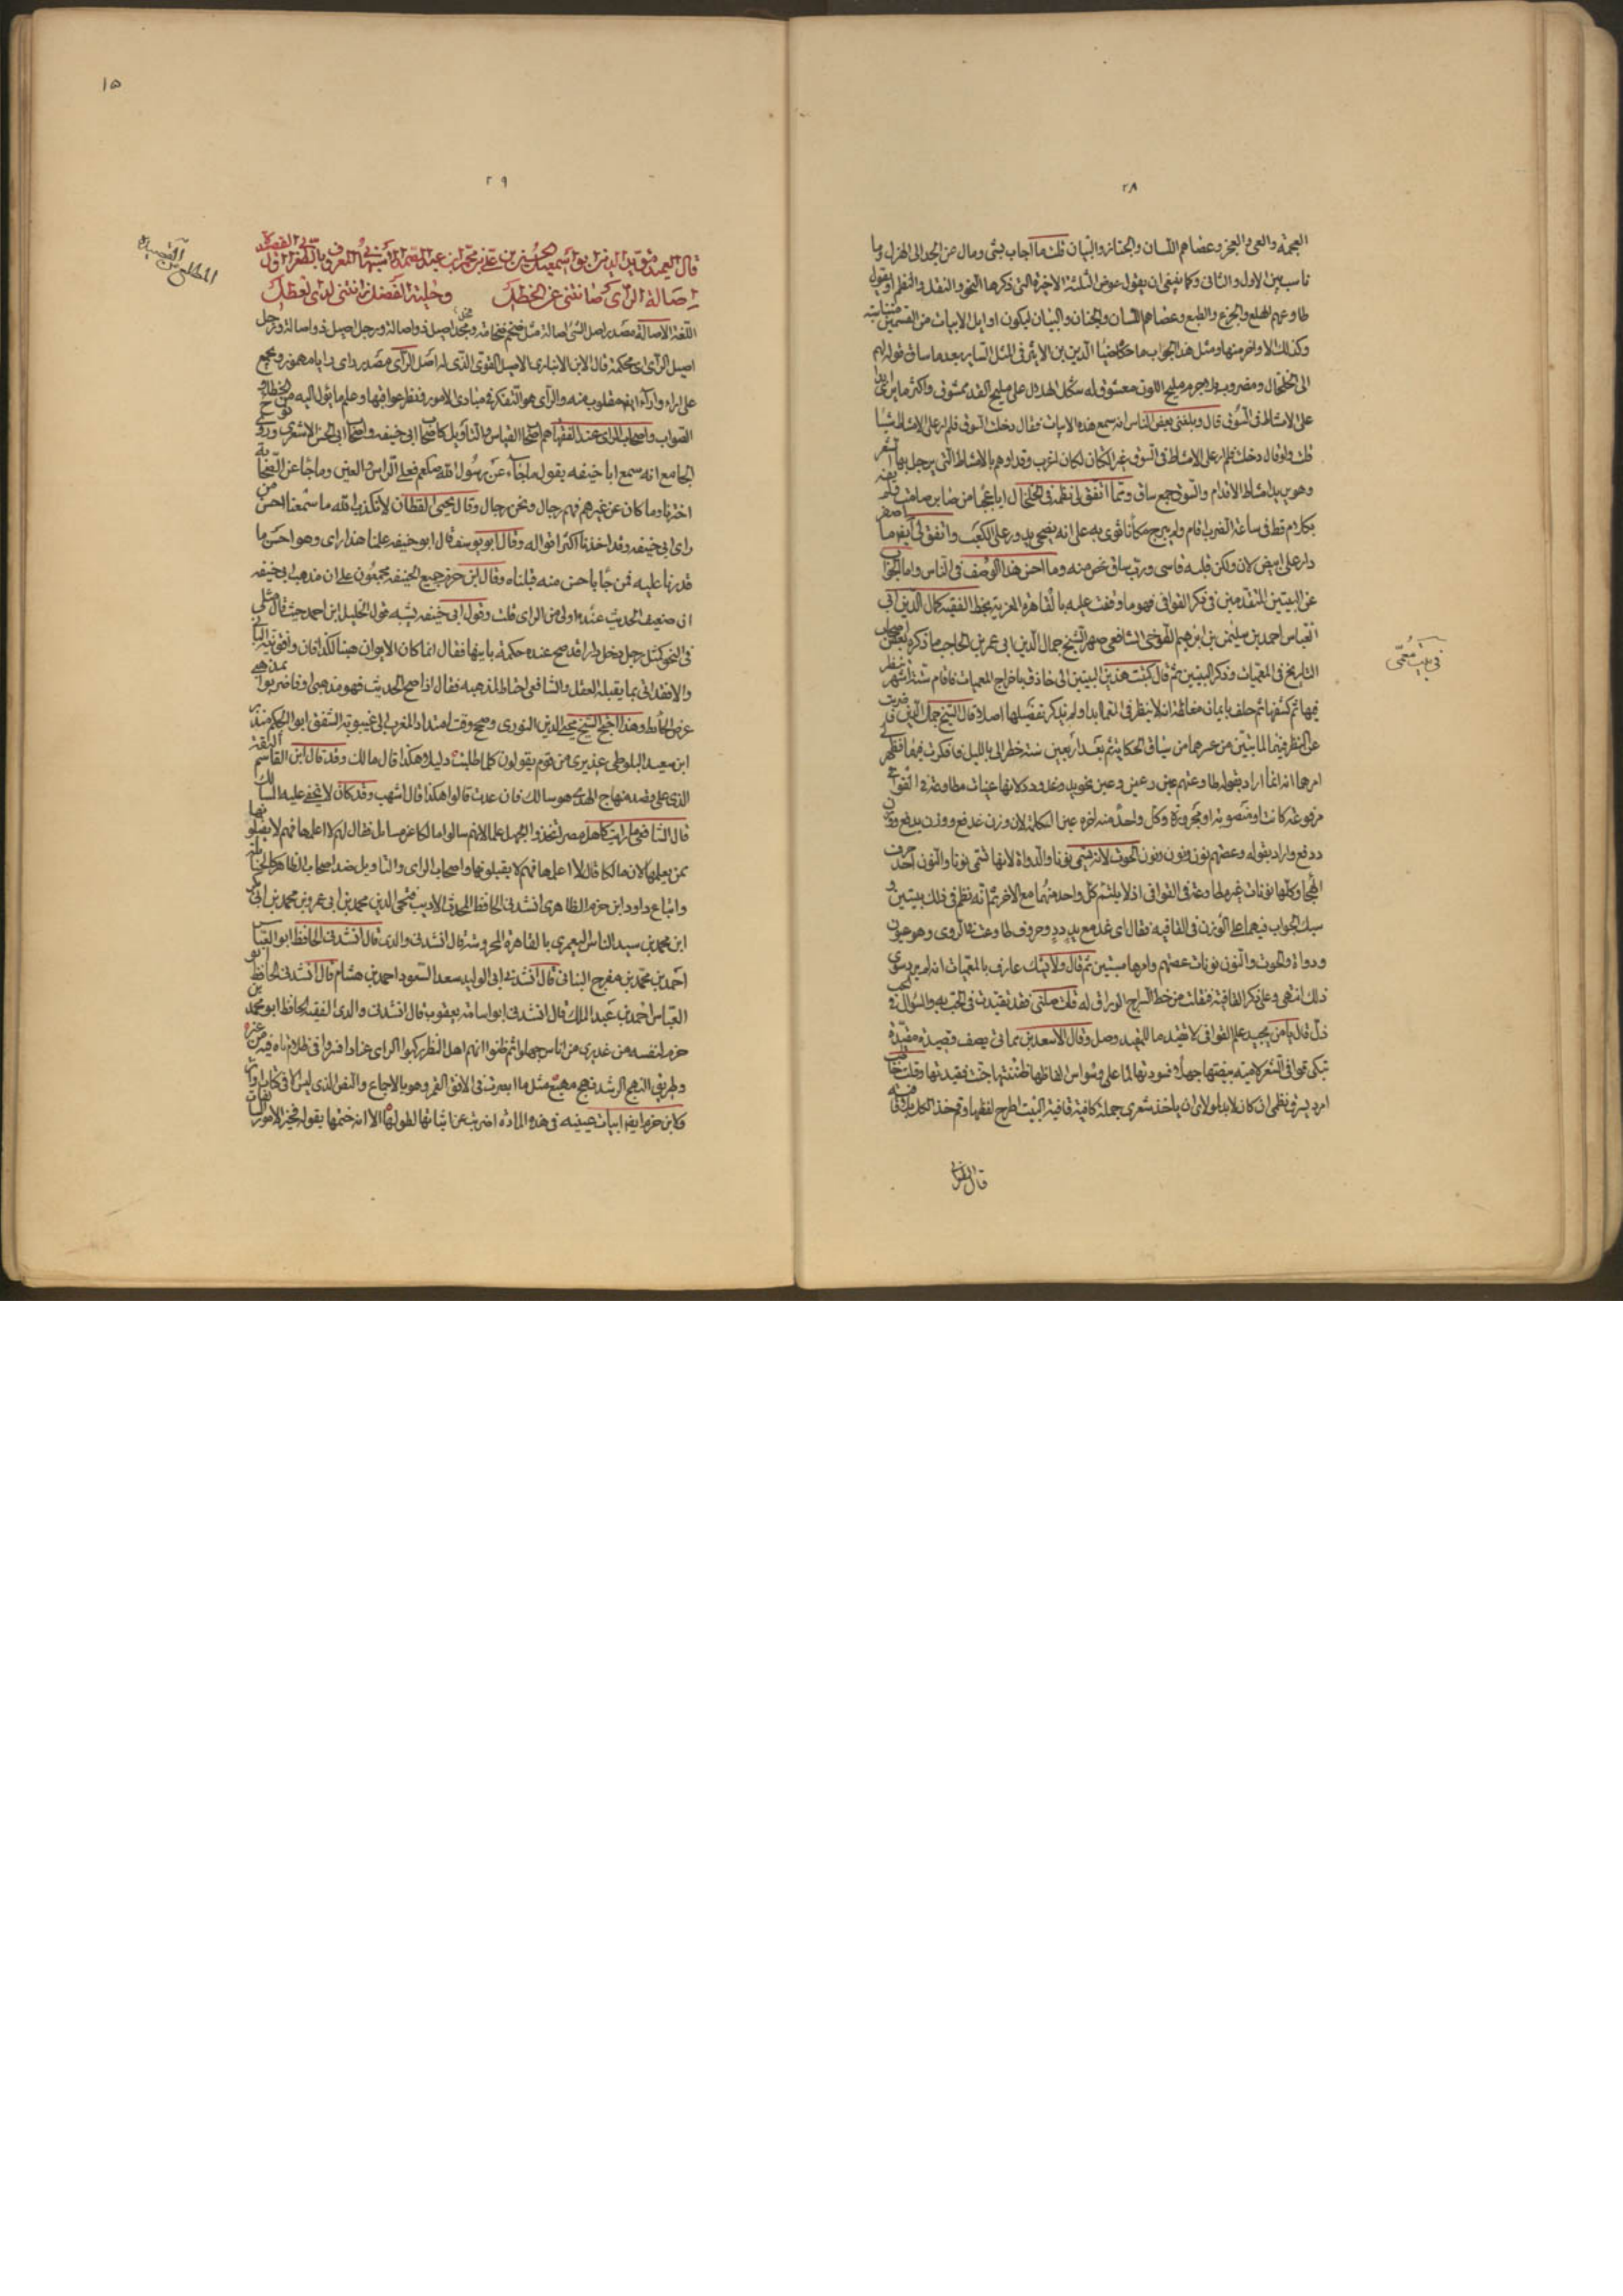 ٢٨
العجمة والعى والعجز وعصاهم اللسان والجنان والبيان قلت ما اجاب بشى ومال من الجد الى الهزل وما
ناسب بين الاول والثانى وكما ينبغى ان يقول عوض الثلثة الاخيرة التى ذكرها النحو والنقل والنظم او يقول
طاوعهم الهلع والجزع والطبع وعصاهم اللسان والجنان والبيان ليكون اوايل الابيات من القسمين متناسبة
وكذلك الاواخر منها ومثل هذا الجواب ما حكاه ضيا الدين بن الاثير فى المثل الساير بعد ما ساق قوله
الى الخلخال ومضروب بلا جرم مليح اللون معشوق له شكل الهلال على مليح القد ممشوق واكثر ما يرى ابدا
على الامشاط فى السوق قال وبلغنى بعض الناس انه سمع هذه الابيات فقال دخلت السوق فلم ار على الامشاط شيا
قلت ولو قال دخلت فلم ار على الامشاط فى السوق غير الكتان لكان اغرب وقد اوهم بالامشاط التى يرجل بها الشعر
وهو يريد امشاط الاقدام والسوق جمع ساق ومما اتفق لى نظمه فى الخلخال ايا عجبا من صابر صامت فلم
يكلم قط فى ساعة الضرب اقام ولم يبرح مكانا ثوى به على انه يضحى يدور على الكعب واتفق لى ايضا
دار على ابيض لان ولكن قلبه قاسى ورب ساق نحن منه وما احسن هذا الوصف فى الناس واما الجواب
عن البيتين المتقدمين فى ذكر القوافى فهو ما وقفت عليه بالقاهرة المعزية بخط الفقيه كمال الدين ابى
العباس احمد بن سليمن بن ابرهيم القوصى الشافعى صهر الشيخ جمال الدين ابى عمرو بن الحاجب ما ذكره بعض اصحاب
التاريخ فى المعميات وذكر البيتين ثم قال كتبت هذين البيتين الى حاذق باخراج المعميات فاقام ستة اشهر ينظر
فيها ثم كشفها ثم حلف بايمان مغلظة ان لا ينظر فى المعما ابدا ولم يذكر تفصيلها اصلا قال الشيخ جمال الدين
عن النظر فيهما لما تبين من عسرهما من سياق الحكاية ثم بعد اربعين سنة خطر الى بالليل ففكرت فيهما فظهر
امرهما انه انما اراد بقوله طاوعتهم عين وعين وعين نحو يد وغد ودد لانها عينات مطاوعة فى القوافى
مرفوعة كانت او منصوبة او مجرورة وكل واحد منها اخره عين الكلمة لان وزن غد فع ووزن يد فع ووزن
دد فع واراد بقوله وعصتهم نون ونون ونون الحوت لانه يسمى نونا والدواة لانها تسمى نونا والنون احد حرف
الهجا وكلها نونات غير مطاوعة فى القوافى اذ لا يلتئم كل واحد منهما مع الاخر ثم انه نظم فى ذلك بيتين
سبك الجواب فيهما على الوزن فى القافية فقال اى غد مع يد دد وحروف طاوعت فى الروى وهو عيون
ودواة والحوت والنون نونات عصتهم وامرها مستبين ثم قال ولا يشك عارف بالمعميات انه لم يرد سوى
ذلك انتهى وعلى ذكر القافية فنقلت من خط السراج الوراق له قلت صلنى فقد تقيدت فى الحب به والسؤال
ذل قال يا من يجيد علم القوافى لا تغلط ما للمقيد وصل وقال الاسعد بن مماتى يصف قصيدة مقيدة
تبكى قوافى الشعر لامية بيضتها جهلا وسودتها لما على وسواس الفاظها ظننتها جنت فقيدتها
فى بيت معمى
قال الطغرائى
١٥
٢٩
قال العميد مؤيد الدين ابو اسمعيل الحسين بن على بن محمد بن عبد الصمد الاصبهانى المعروف بالطغرائى
اصالة الراى صانتنى عن الخطل وحلية الفضل زانتنى لدى العطل
المطلع من القصيدة
اللغة الاصالة مصدر اصل الشى اصالة مثل ضخم ضخامة ومجد اصيل ذو اصالة ورجل اصيل ذو اصالة ورجل
اصيل الراى اى محكمه قال ابن الانبارى الاصيل القوى الذى له اصل الراى مصدر راى رايا مهموز ويجمع
على اراء وارآء ايضا مقلوب منه والراى هو التفكر فى مبادى الامور ونظر عواقبها وعلم ما يؤل اليه من الخطا و
الصواب واصحاب الراى عند الفقهاء هم اصحاب القياس والتاويل كاصحاب ابى حنيفه واصحاب ابى الحسن الاشعرى وروى نوح
الجامع انه سمع ابا حنيفه يقول ما جاء عن رسول الله صلعم فعلى الراس والعين وما جا عن الصحابة
اخترنا وما كان عن غيرهم فهم رجال ونحن رجال وقال يحيى القطان لا نكذب الله ما سمعنا احسن من
راى ابى حنيفه وقد اخذنا اكثر اقواله وقال ابو يوسف قال ابو حنيفه علمنا هذا راى وهو احسن ما
قدرنا عليه فمن جا باحسن منه قبلناه وقال ابن حزم جميع الحنيفه مجمعون على ان مذهب ابى حنيفه
ان ضعيف الحديث عنده اولى من الراى قلت وقول ابى حنيفه يشبه قول الخليل ابن احمد حيث قال مثلى
فى النحو كمثل رجل دخل دارا قد صح عنده حكمة بانيها فقال انما كان الايوان هنا لكذا فان وافق بنية البانى
والا فقد اتى بما يقبله العقل والشافعى احتاط لمذهبه فقال اذا صح الحديث فهو مذهبى او فاضربوا بمذهبى
عرض الحايط وهذا احتج الشيخ محيى الدين النووى وصحح وقت امتداد المغرب الى غيبوبة الشفق ابو الحكم منذر
ابن سعيد البلوطى عذيرى من قوم يقولون كلما طلبت دليلا هكذا قال مالك وقد قال ابن القاسم الثقة
الذى على قصد منهاج الهدى هو سالك فان عدت قالوا هكذا قال اشهب وقد كان لا تخفى عليه المسالك
قال الشافعى ما رايت كاهل مصر اتخذوا الجهل علما لانهم سالوا مالكا عن مسايل فقال لهم لا اعلمها فهم لا يقبلونها
ممن يعلمها لان مالكا قال لا اعلمها فهم لا يقبلونها واصحاب الراى والتاويل ضد اصحاب الظاهر كالحنابلة
واتباع داود ابن حزم الظاهرى انشدنى الحافظ المحدث الاديب فتح الدين محمد بن ابى عمرو بن محمد بن ابى بكر
ابن محمد بن سيد الناس اليعمرى بالقاهرة المحروسة قال انشدنى والدى قال انشدنى الحافظ ابو العباس
احمد بن محمد بن مفرج النباتى قال انشدنى ابى الوليد سعد السعود احمد بن هشام قال انشدنى الحافظ ابو
العباس احمد بن عبد الملك قال انشدنى ابو اسامة يعقوب قال انشدنى والدى الفقيه الحافظ ابو محمد بن
حزم لنفسه من عذيرى من اناس جهلوا ثم ظنوا انهم اهل النظر ركبوا الراى عنادا فسروا فى ظلام تاه فيه من عبر
وطريق النهج الرشد نهج مهيع مثل ما ابصرت فى الافق القمر وهو بالاجماع والنص الذى ليس الا فى كتاب او اثر
ولابن حزم ايضا ابيات عينيه فى هذه المادة اضربت عن اثباتها لطولها الا انه ختمها بقوله